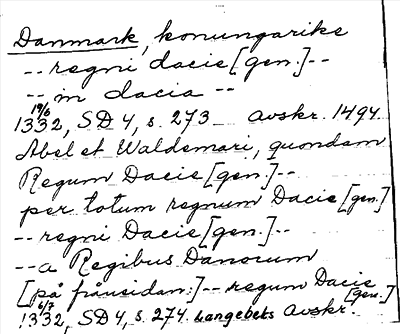 Danmark, konungarike
-- regni dacie [gen.] --
-- in dacia --
19/6
1332, SD 4, s. 273 Avskr. 1494.
Abel et Waldemari, quondam
Regum Dacie [gen.] --
per totum regnum Dacie [gen.]
-- regni Dacie [gen.] --
-- a Regibus Danorum
[på frånsidan:] -- regum Dacie [gen.]
6/7
1332, SD 4, s. 274. Langebeks Avskr.